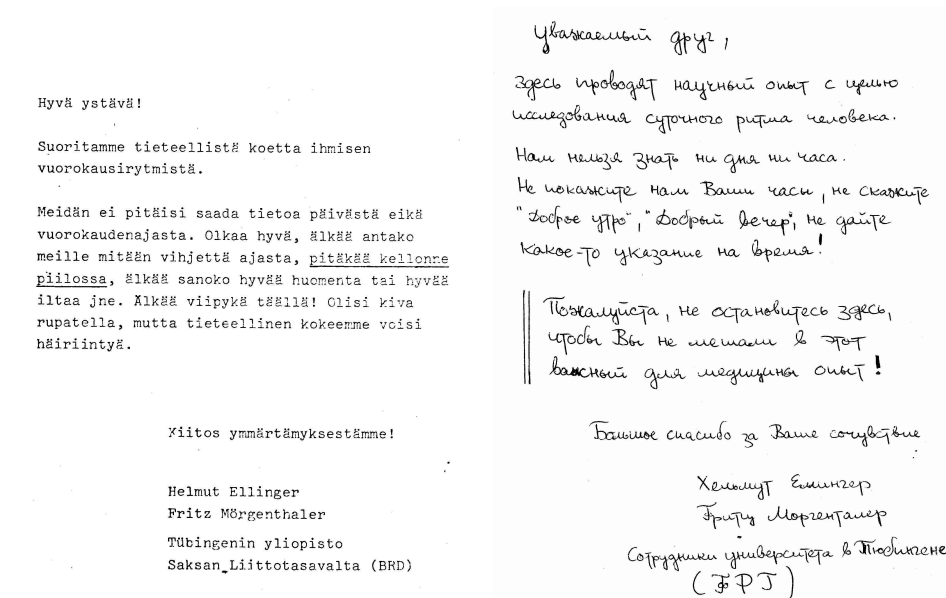 Hyvä ystävä!
Suoritamme tieteellistä koetta ihmisen
vuorokausirytmistä.
Meidän ei pitäisi saada tietoa päivästä eikä
vuorokaudenajasta. Olkaa hyvä, älkää antako
meille mitään vihjettä ajasta, pitäkää kellonne
piilossa, älkää sanoko hyvää huomenta tai hyvää
iltaa jne. Älkää viipykä täällä! Olisi kiva
rupatella, mutta tieteellinen kokeemme voisi
häiriintyä.
Kiitos ymmärtämyksestämme!
Helmut Ellinger
Fritz Mörgenthaler
Tübingenin yliopisto
Saksan Liittotasavalta (BRD)
Уважаемый друг,
здесь проводят научный опыт с целью
исследования суточного ритма человека.
Нам нельзя знать ни дня ни часа.
Не покажите нам Ваши часы, не скажите
"Доброе утро", "Добрый вечер", не дайте
какое-то указание на время!
Пожалуйста, не остановитесь здесь,
чтобы Вы не мешали в этот
важный для медицины опыт!
Большое спасибо за Ваше сочувствие
Хельмут Еллингер
Фритц Моргенталер
Сотрудники университета в Тюбингене
(ФРГ)